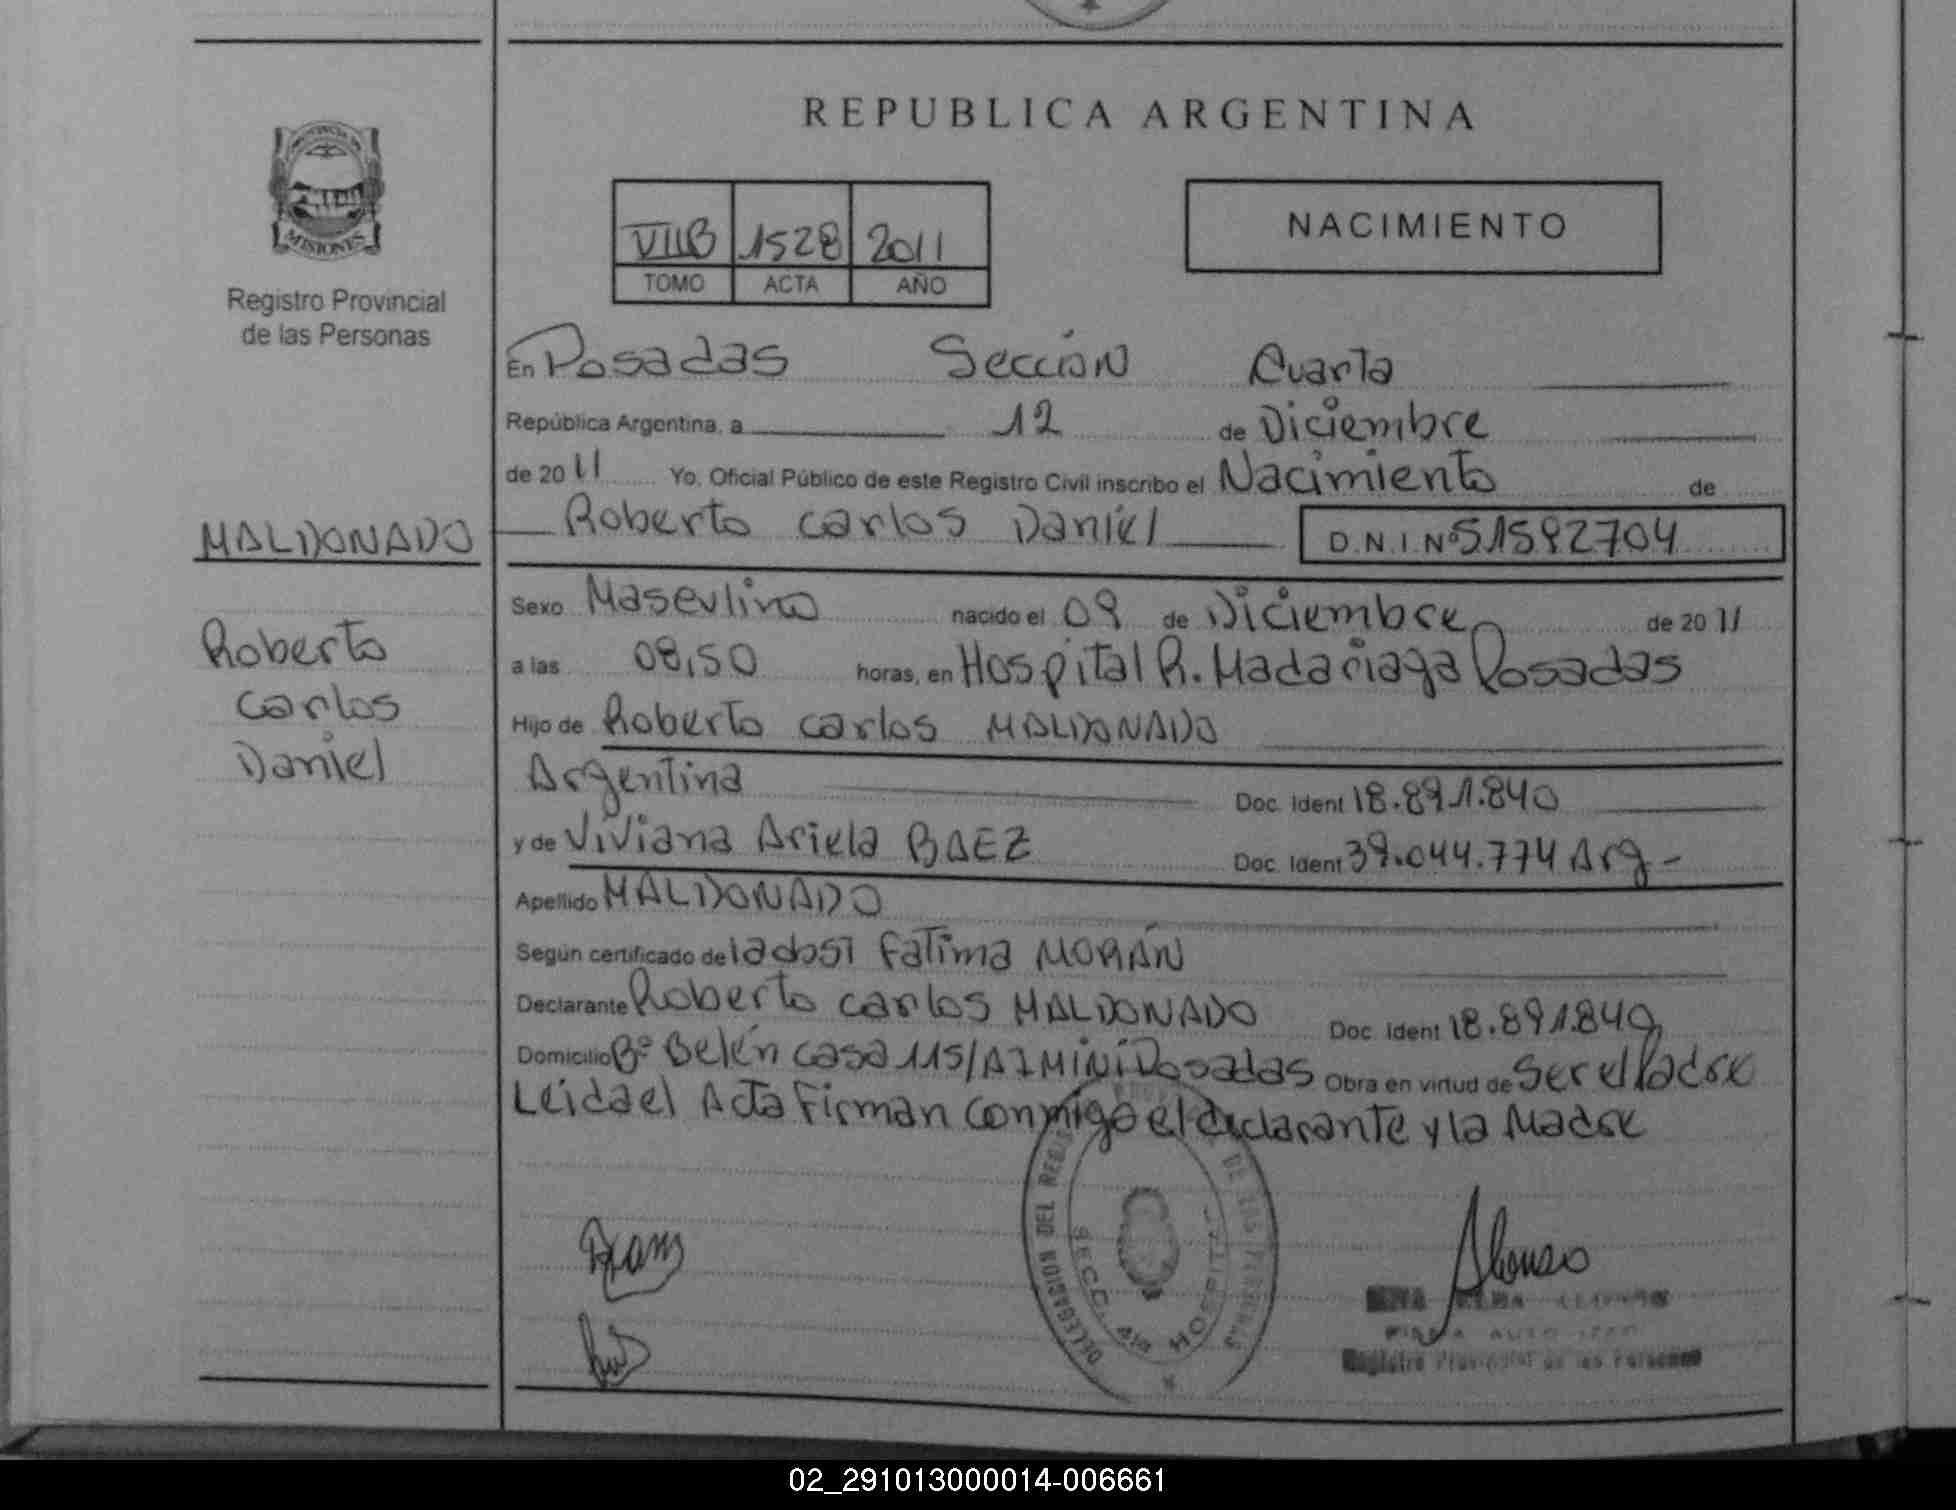 REPUBLICA ARGENTINA
PROVINCIA DE
MISIONES
Registro Provincial
de las Personas
VIIB 1528 2011
TOMO ACTA AÑO
NACIMIENTO
En Posadas Sección Cuarta
República Argentina, a 12 de Diciembre
de 2011 Yo, Oficial Público de este Registro Civil inscribo el Nacimiento de
MALDONADO
Roberto Carlos Daniel D.N.I. Nº 51592704
Roberto
Carlos
Daniel
Sexo Masculino nacido el 09 de Diciembre de 2011
a las 08,50 horas, en Hospital R. Madariaga Posadas
Hijo de Roberto Carlos MALDONADO
Argentina Doc. Ident 18.891.840
y de Viviana Ariela BAEZ Doc. Ident 39.044.774 Arg-
Apellido MALDONADO
Según certificado de la obst Fatima MORÁN
Declarante Roberto Carlos MALDONADO Doc. Ident 18.891.840
Domicilio Bº Belén casa 115/A I MiNi Posadas Obra en virtud de Ser el Padre
Leida el Acta Firman Conmigo el declarante y la Madre
DELEGACION DEL DE LAS
SECC. 4ta HOSPITAL
Registro Provincial de las Personas
02_291013000014-006661